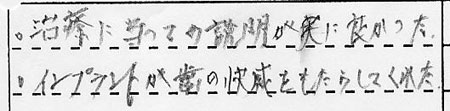 。治療に当っての説明が実に良かった。
。インプラントが歯の快感をもたらしてくれた